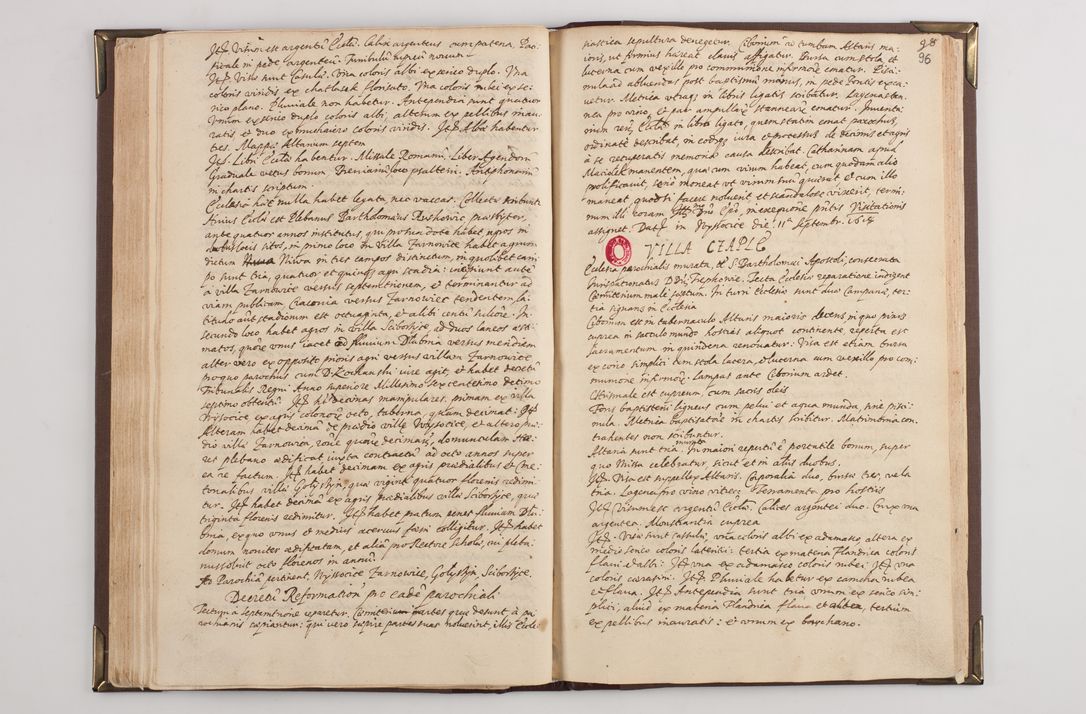 Itē Visum est argentū Ecclae. Calix argenteus cum patena. Paci-
ficale in pede argenteū. Turribulū cupreū novum.
Itē Visae sunt Casulae. Una coloris albi ex serico duplo. Una
coloris viridis ex chatlasek florsato. Una coloris rubei ex se-
rico plano. Pluviale non habetur. Antependia sunt quatuor
Unum ex serico duplo coloris albi, alterum ex pellibus inau-
ratis et duo ex bruchaiero coloris viridis. Itē Albae habentur
tres. Mappae Altarium septem
Itē. Libri Ecclae habentur. Missale Romanū. Liber Agendorū
Graduale vetus bonum Breviariū loco psalterii. Antiphonariū
in chartis scriptum.
Ecclesia haec nulla habet legata, nec vaccas.
ante quatuor annos institutus, qui pro sua dote habet agros in
duobus locis sitos, in primo loco in Villa Tarnowice habet agrum
dictum Niwa in tres campos distinctum, in quolibet cam-
po sunt tria, quatuor et quinque agri stadia: incipiunt autē
a villa Tarnowice versus septemtrionem, et terminantur ad
viam publicam Cracovia versus Tarnowice tendentem, la-
titudo aut stadiorum est octuaginta, et alibi centū sulcorū. In
secundo loco habet agros in villa Sciborzice, ad duos laneos aesti-
matos, quorē unus iacet ad fluvium Dlubnia versus meridiem
alter vero ex opposito prioris agri versus villam Tarnowice
pro quo parochus cum D. Kochanski iure agit, et habet decretū
Tribunalis Regni Anno superiore Millesimo sexcentesimo decimo
septimo obtentū. Itē hēt decimas manipulares, primam ex villa
Wysocice ex agris colonorē octo, taberna, quam decimat: Itē
alteram habet decimā de praedio villae Wysocice, et altero prae-
dio villae Tarnowice,
ret plebano aedificat iuxta contractū ad octo annos super
ea re factum. Itē habet decimam ex agris praedialibus et Cme-
tonalibus villae Golyszyn, quae viginti quatuor florenis redimi-
tur. Itē habet decimā ex agris praedialibus villae Sciborzice, quae
triginta florenis redimitur. Itē habet pratum penes fluvium Dlu-
bnia, ex quo unus et medius acervus foeni colligitur. Itē habet
domum noviter aedificatam, et aliā pro Rectore Scholae, cui pleba-
nus solvit octo florenos in annū.
Ad Parochiā pertinent, Wyssocice Tarnowice, Golyszyn, Sciborzyce.
Decretū Reformationis pro eadē parochiali
Tectum a septemtrione reparetur, Coemiterium partes quae desunt, a pa-
rochianis capiantur: qui vero sepire partes suas noluerint, illis Eccle-
98
96
siastica sepultura denegetur. Ciborium ad tumbam Altaris ma-
ioris, ut firmius haereat clavis affigatur. Bursa cum stola et
lucerna cum vexillo pro communione infirmorē ematur. Pisci-
mula ad abluendas post baptismū manus, in pede Fontis exca-
vetur. Metrica utraque in libris ligatis scribatur. Lagena stan-
nea pro vino, et par ampullarē stannearē ematur. Inventa-
rium rerū Ecclae in libro ligato, quem statim emat parochus,
ordinate describat, in eodem iura et processus de decimis et agris
a se recuperatis memoriae causa describat. Catharinam apud
Maciolek manentem, quae cum virum habeat, cum quodam alio
prolificavit, serio moneat ut virum suū quaerat et cum illo
maneat, quod si facere noluerit et scandalose vixerit, termi-
num illi coram
assignet. Datū in Wyssocice die 11ª Septembr. 1618
VILLA CZAPLE
Ecclesia parochialis murata, tt S. Bartholomaei Apostoli, consecrata
Iurispatronatus D.Dn. Trepkowie. Tecta Ecclesia reparatione indigent
Coemiterium male septum. In turri Ecclesiae sunt duae Campanae, ter-
tia signans in Ecclesia
Ciborium est in tabernaculo Altaris maioris decens, in quo pixis
cuprea in sacculo mundo hostias aliquot continente reperta est
sacramentum in quindena renovatur: Visa est etiam bursa
ex corio simplici cum stola lacera, et lucerna cum vexillo pro com-
munione infirmorē: Lampas ante Ciborium ardet.
Chrismale est cupreum, cum sacris oleis.
Fons baptismi ligneus cum pelvi et aqua munda, sine pisci-
mula. Metrica baptisatorē in chartis scribitur. Matrimonia con-
trahentes non scribuntur.
Altaria sunt tria murata. In maiori repertū ē portatile bonum, super
quo Missa celebratur, sicut et in aliis duobus.
Itē. Visa est supellex Altaris. Corporalia duo, bursae tres, vela
tria. Lagena pro vino vitrea. Ferramenta pro hostiis
Itē Visum est argentū Ecclae. Calices argentei duo. Crux una
argentea. Monstrantia cuprea
Itē. Visae sunt Casulae, una coloris albi ex adamasco, altera ex
medio serico coloris lateritii: tertia ex materia Flandrica coloris
flavi et albi: Itē una ex adamasco coloris rubei, itē una
coloris carasini. Itē Pluviale habetur ex camcha rubea
et flava. Itē Antependia sunt tria unum ex serico sim-
plici, aliud ex materia Flandrica flava et albea, tertium
ex pellibus inauratis: et unum ex borychano.